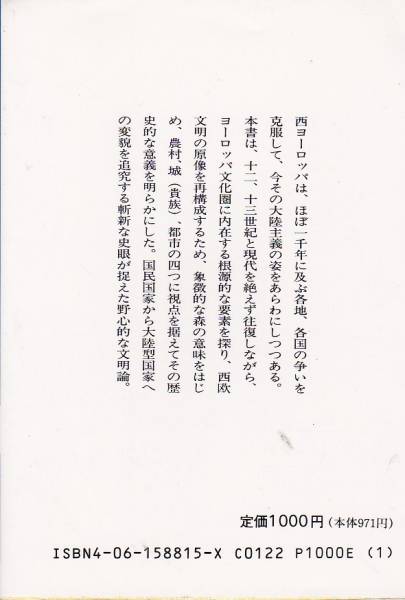 西ヨーロッパは、ほぼ一千年に及ぶ各地、各国の争いを
克服して、今その大陸主義の姿をあらわにしつつある。
本書は、十二、十三世紀と現代を絶えず往復しながら、
ヨーロッパ文化圏に内在する根源的な要素を探り、西欧
文明の原像を再構成するため、象徴的な森の意味をはじ
め、農村、城（貴族）、都市の四つに視点を据えてその歴
史的な意義を明らかにした。国民国家から大陸型国家へ
の変貌を追究する斬新な史眼が捉えた野心的な文明論。
定価1000円（本体971円）
ISBN4-06-158815-X C0122 P1000E (1)